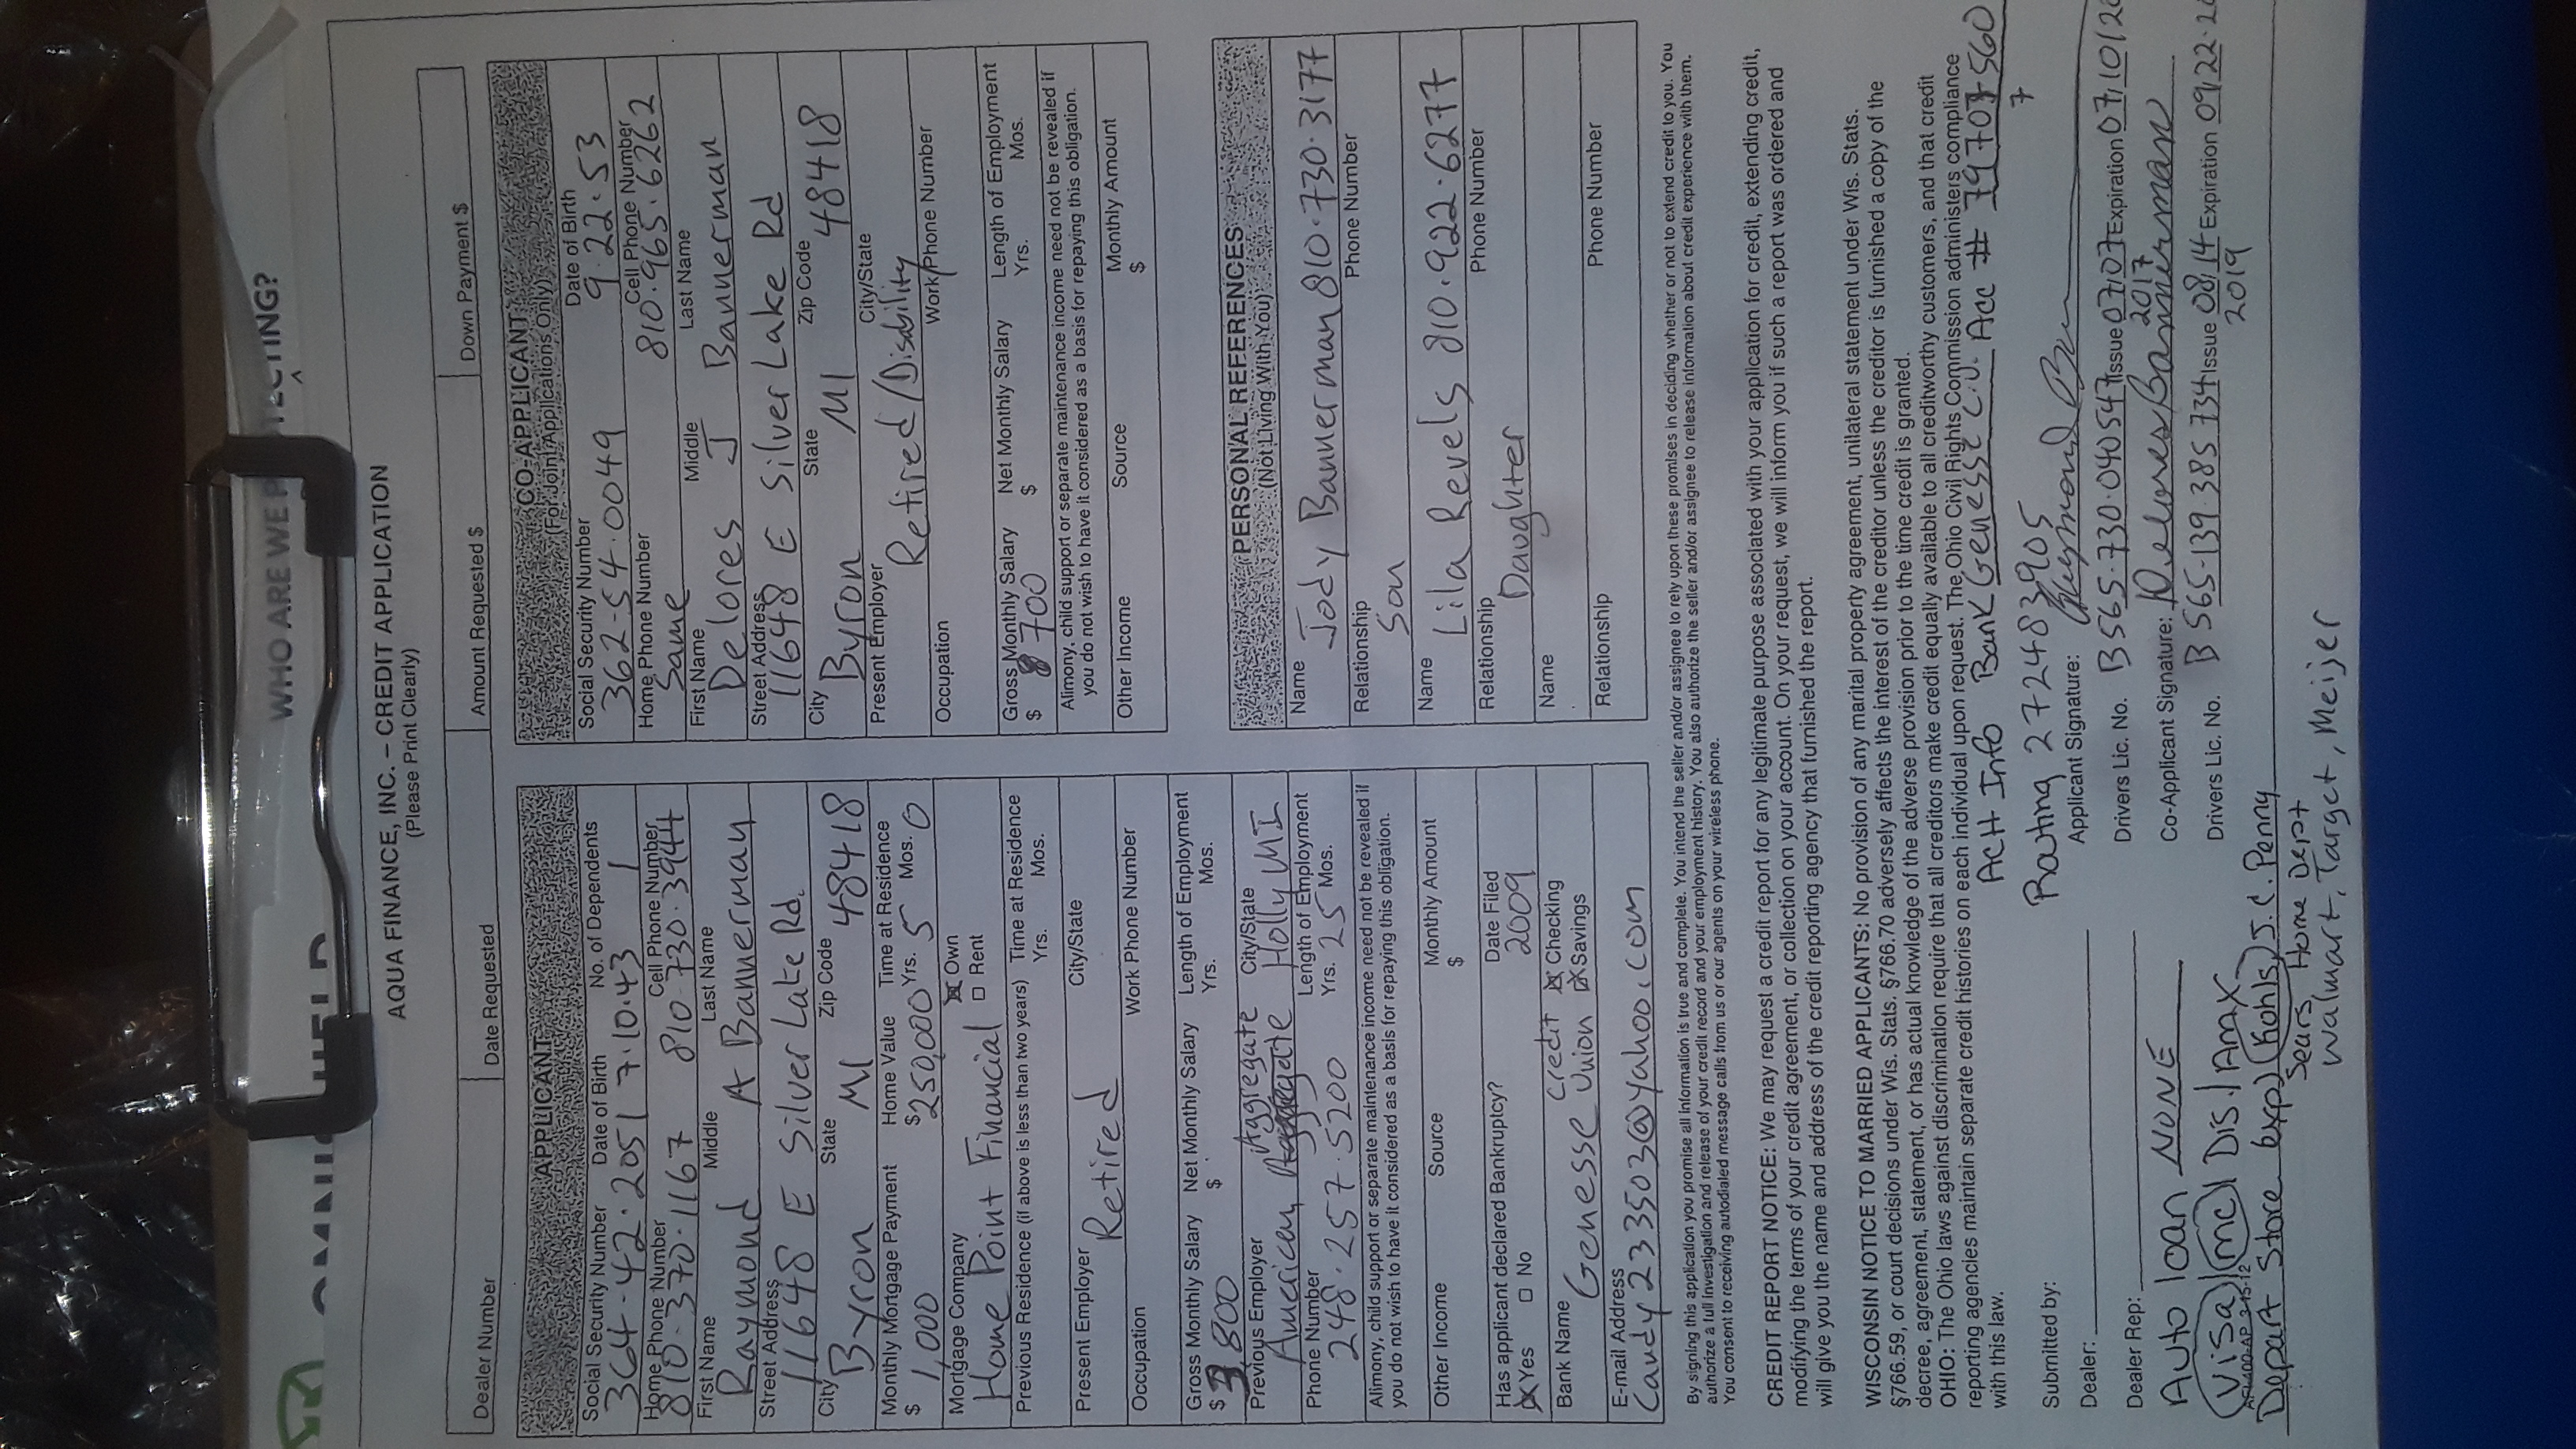 WHO ARE WE P
CTING?
AQUA FINANCE, INC. – CREDIT APPLICATION
(Please Print Clearly)
Dealer Number
Date Requested
Amount Requested $
Down Payment $
APPLICANT
Social Security Number Date of Birth No. of Dependents
364-42-2051 7·10·43 1
Home Phone Number Cell Phone Number
810-370-1167 810-730-3944
First Name Middle Last Name
Raymond A Bannerman
Street Address
11648 E Silver Lake Rd.
City State Zip Code
Byron MI 48418
Monthly Mortgage Payment Home Value Time at Residence
$ 1,000 $250,000 Yrs. 5 Mos. 0
Mortgage Company ☒ Own
Home Point Financial ☐ Rent
Previous Residence (if above is less than two years) Time at Residence
Yrs. Mos.
Present Employer City/State
Retired
Occupation Work Phone Number
Gross Monthly Salary Net Monthly Salary Length of Employment
$ 3,800 $ Yrs. Mos.
Previous Employer City/State
American Aggregate Holly MI
Phone Number Length of Employment
248-257-5200 Yrs. 25 Mos.
Alimony, child support or separate maintenance income need not be revealed if
you do not wish to have it considered as a basis for repaying this obligation.
Other Income Source Monthly Amount
$
Has applicant declared Bankruptcy? Date Filed
☒ Yes ☐ No 2009
Bank Name ☒ Checking
Genesse Credit Union ☒ Savings
E-mail Address
Candy223503@yahoo.com
CO-APPLICANT
(For Joint Applications Only)
Social Security Number Date of Birth
362-54-0049 9·22·53
Home Phone Number Cell Phone Number
Same 810·965·6262
First Name Middle Last Name
Delores J Bannerman
Street Address
11648 E Silver Lake Rd
City State Zip Code
Byron MI 48418
Present Employer City/State
Retired/Disability
Occupation Work Phone Number
Gross Monthly Salary Net Monthly Salary Length of Employment
$ 700 $ Yrs. Mos.
Alimony, child support or separate maintenance income need not be revealed if
you do not wish to have it considered as a basis for repaying this obligation.
Other Income Source Monthly Amount
$
PERSONAL REFERENCES
(Not Living With You)
Name Phone Number
Jody Bannerman 810·730·3177
Relationship
Son
Name Phone Number
Lila Revels 810·922·6277
Relationship
Daughter
Name Phone Number
Relationship
By signing this application you promise all information is true and complete. You intend the seller and/or assignee to rely upon these promises in deciding whether or not to extend credit to you. You
authorize a full investigation and release of your credit record and your employment history. You also authorize the seller and/or assignee to release information about credit experience with them.
You consent to receiving autodialed message calls from us or our agents on your wireless phone.
CREDIT REPORT NOTICE: We may request a credit report for any legitimate purpose associated with your application for credit, extending credit,
modifying the terms of your credit agreement, or collection on your account. On your request, we will inform you if such a report was ordered and
will give you the name and address of the credit reporting agency that furnished the report.
WISCONSIN NOTICE TO MARRIED APPLICANTS: No provision of any marital property agreement, unilateral statement under Wis. Stats.
§766.59, or court decisions under Wis. Stats. §766.70 adversely affects the interest of the creditor unless the creditor is furnished a copy of the
decree, agreement, statement, or has actual knowledge of the adverse provision prior to the time credit is granted.
OHIO: The Ohio laws against discrimination require that all creditors make credit equally available to all creditworthy customers, and that credit
reporting agencies maintain separate credit histories on each individual upon request. The Ohio Civil Rights Commission administers compliance
with this law.
ACH Info Bank Genesse C.U. Acc #
Routing 272483905
Submitted by:
Applicant Signature:
Dealer:
Drivers Lic. No. B 565·730·040547 Issue 07/07 2017 Expiration 07/10/2
Dealer Rep:
Co-Applicant Signature: Delores Bannerman
Drivers Lic. No. B 565-139-385 734 Issue 08/14 2019 Expiration 09/22·2
Auto loan NONE
Visa/mc/Dis/Amx
Depart Store exp) Kohls, J.C. Penny
Sears, Home Dept
Walmart, Target, Meijer